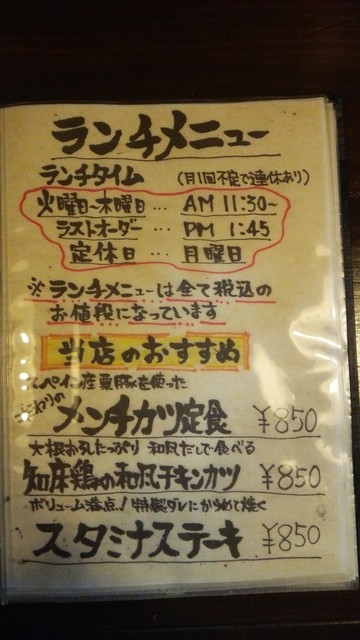 ランチメニュー
ランチタイム (月1回不定で連休あり)
火曜日~木曜日… AM 11:30~
ラストオーダー… PM 1:45
定休日… 月曜日
※ランチメニューは全て税込の
お値段になっています
当店のおすすめ
スペイン産栗豚を使った
こだわりの
メンチカツ定食 ¥850
大根おろしたっぷり 和風だしで食べる
知床鶏の和風チキンカツ ¥850
ボリューム満点!特製ダレにからめて焼く
スタミナステーキ ¥850